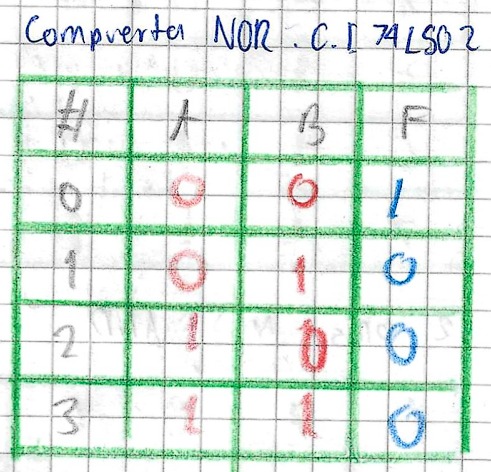 Compuerta NOR. C.I 74LS02
# A B F
0 0 0 1
1 0 1 0
2 1 0 0
3 1 1 0